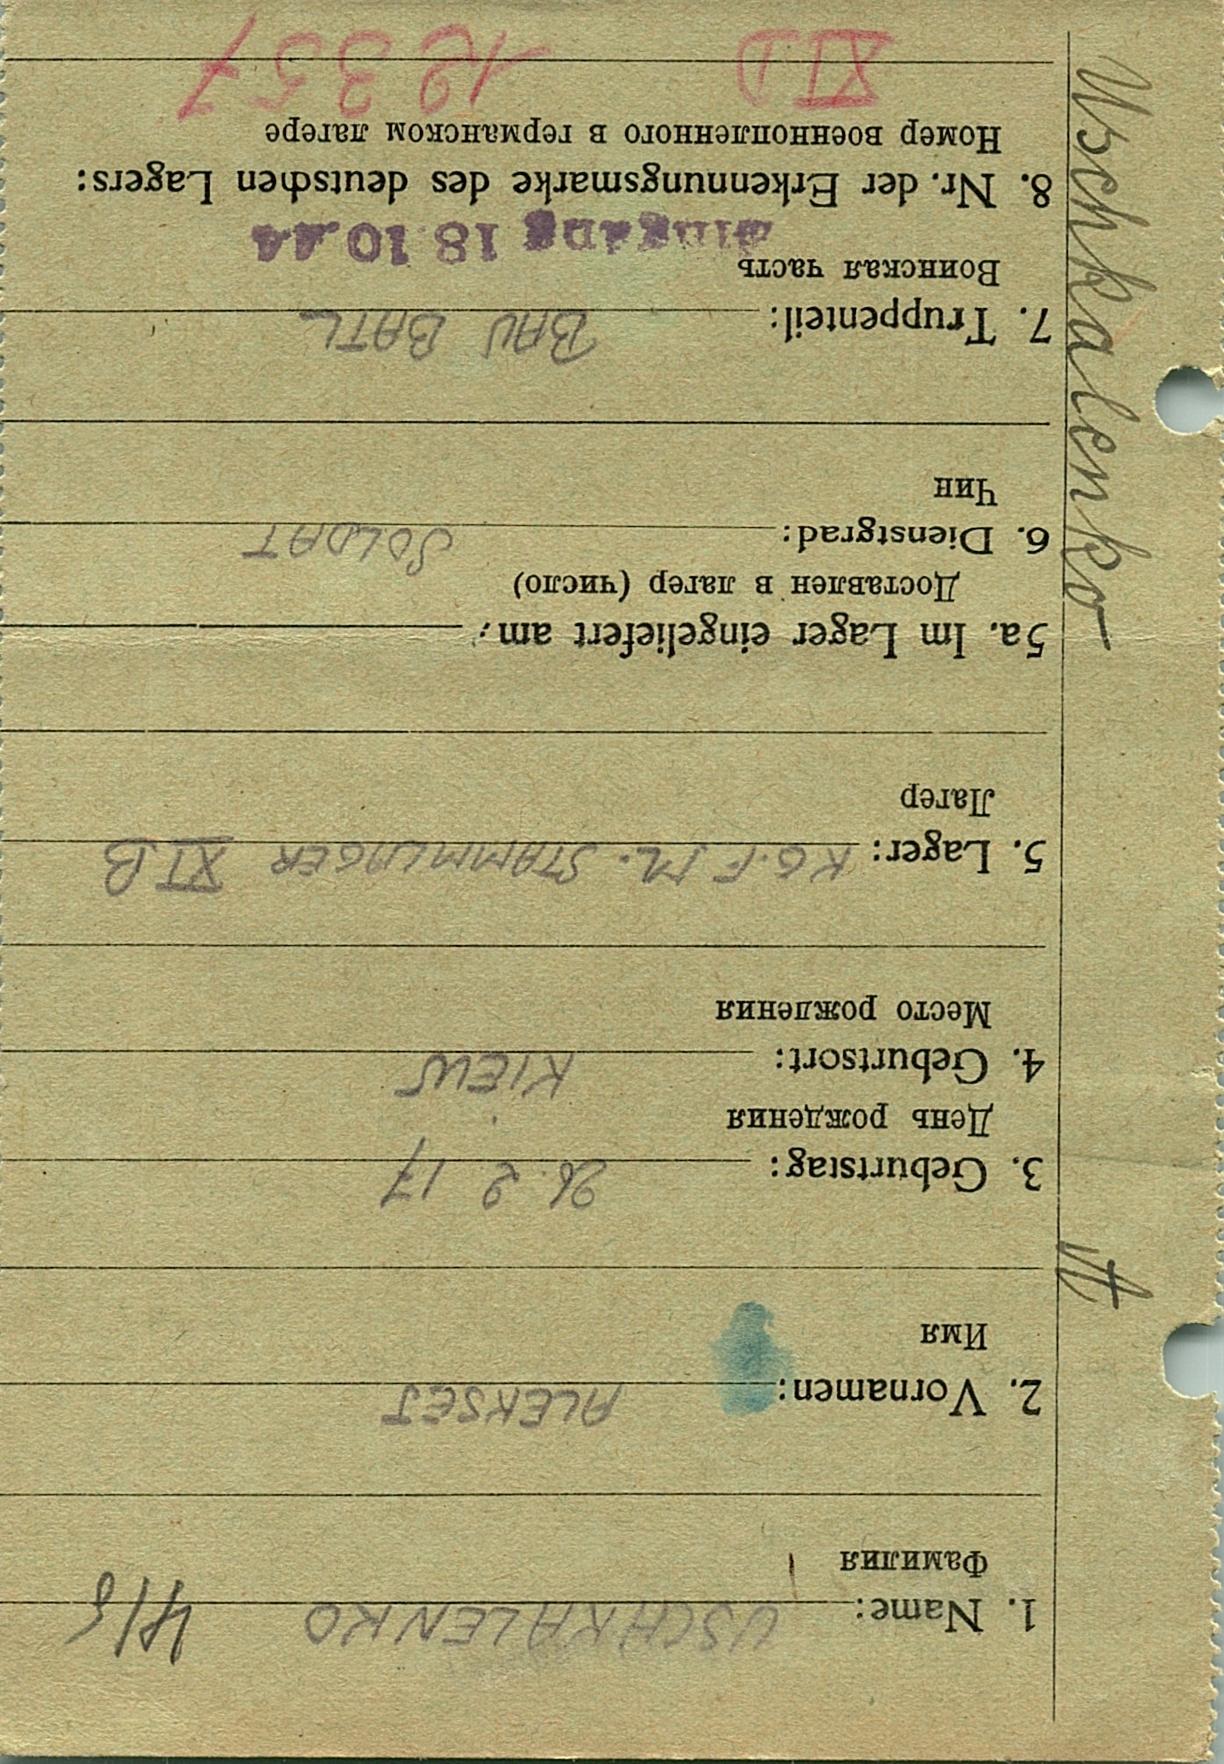 1. Name: USCHKALENKO 41/8
Фамилия
2. Vornamen: ALEKSEJ
Имя
3. Geburtstag: 26.2.17
День рождения
4. Geburtsort: KIEW
Место рождения
5. Lager: KG.F.M.-STAMMLAGER XI B
Лагер
5a. Im Lager eingeliefert am:
Доставлен в лагер (число)
6. Dienstgrad: SOLDAT
Чин
7. Truppenteil: BAU BATL
Воинская часть
Eingang 18.10.44
8. Nr. der Erkennungsmarke des deutschen Lagers:
Номер военнопленного в германском лагере
XI D 12357
Uschkalenko